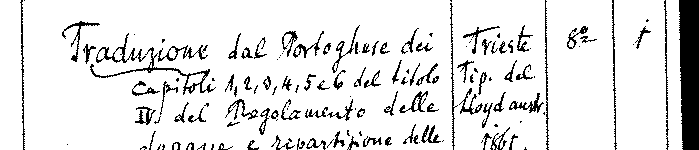 Traduzione dal Portoghese dei
capitoli 1, 2, 3, 4, 5 e 6 del titolo
IV del Regolamento delle
dogane e ripartizione delle
Trieste
Tip. del
Lloyd austr.
1861.
8º
1